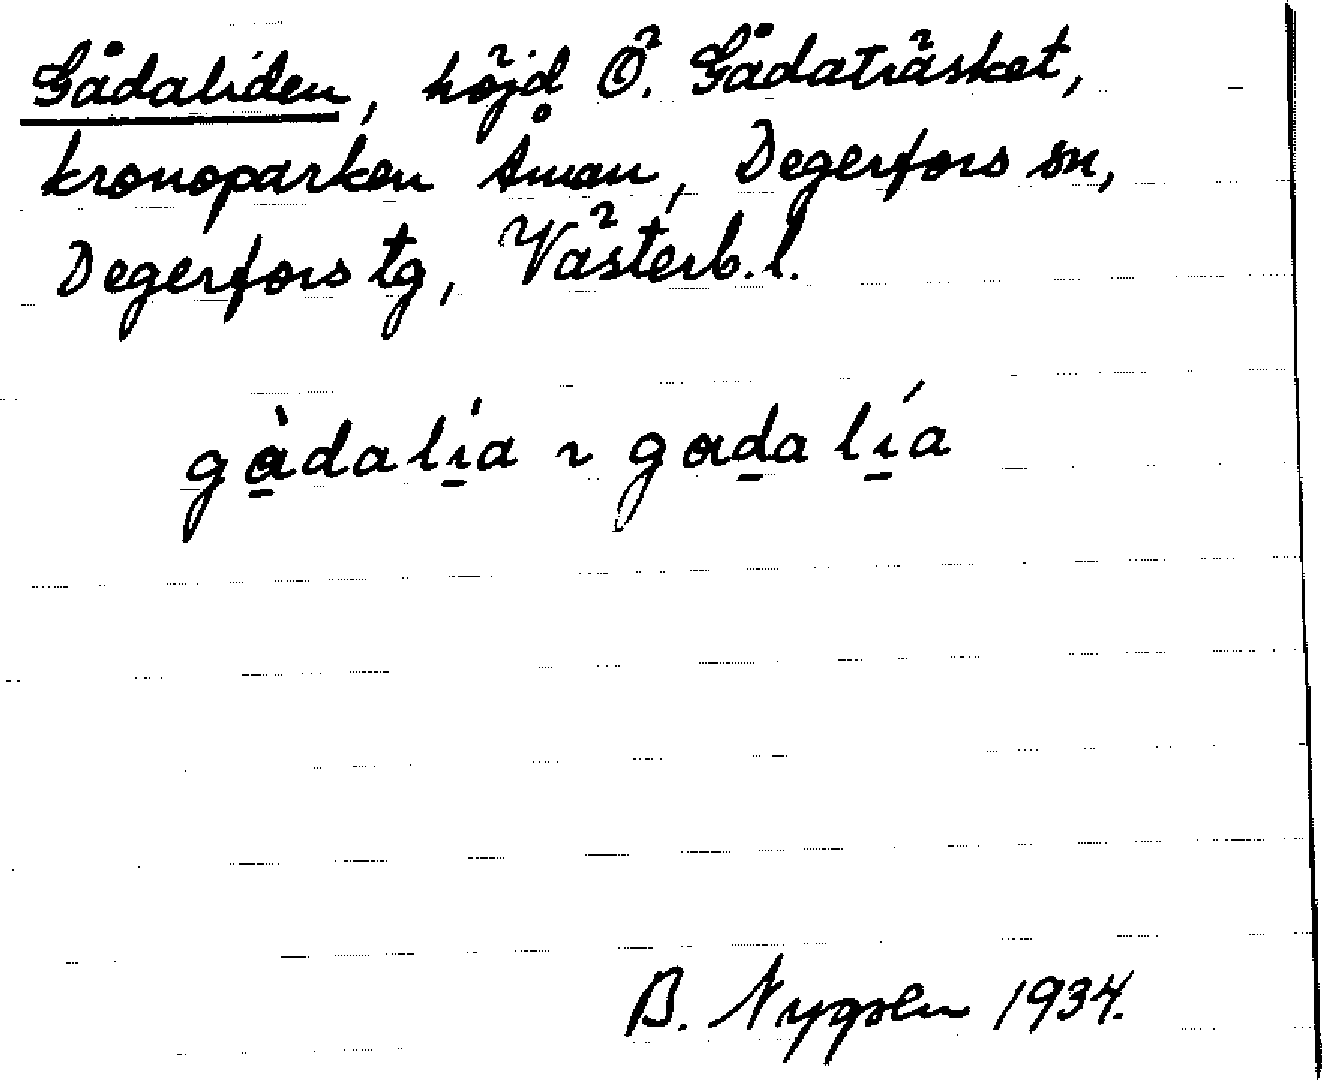 Gådaliden, höjd Ö. Gådaträsket,
kronoparken Åman, Degerfors sn,
Degerfors tg, Västerb. l.
gàdalía ~ gadalía
B. Nygren 1934.